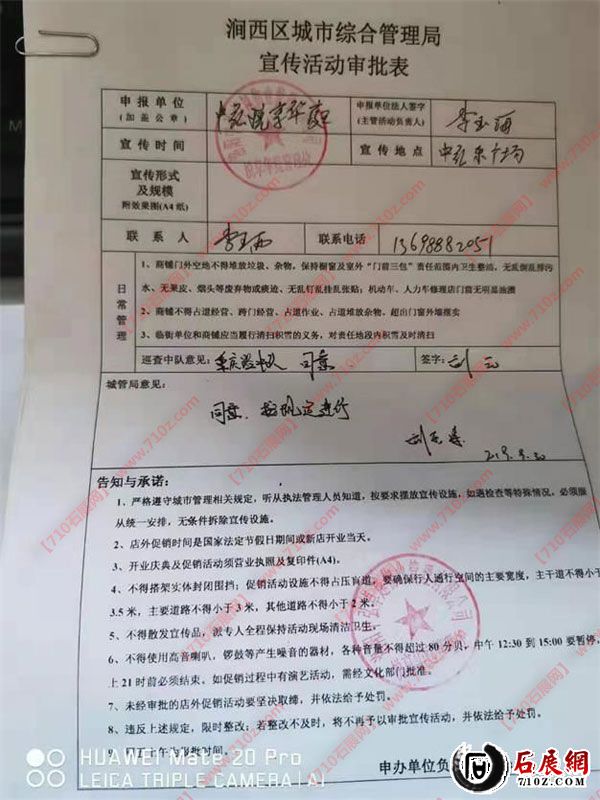 涧西区城市综合管理局
宣传活动审批表
申报单位
(加盖公章)
申报单位法人签字
(主管活动负责人)
宣传时间
宣传地点
宣传形式
及规模
附效果图(A4纸)
联系人
联系电话
13698882051
日常管理
1、商铺门外空地不得堆放垃圾、杂物,保持橱窗及室外"门前三包"责任范围内卫生整洁,无乱倒乱排污
水、无果皮、烟头等废弃物或痰迹、无乱钉乱挂乱张贴;机动车、人力车修理店门前无明显油渍
2、商铺不得占道经营、跨门经营、占道作业、占道堆放杂物、超出门窗外堆摆卖
3、临街单位和商铺应当履行清扫积雪的义务,对责任地段内积雪及时清扫
巡查中队意见:
同意
签字:
城管局意见:
同意、按规定进行
告知与承诺:
1、严格遵守城市管理相关规定,听从执法管理人员知道,按要求摆放宣传设施,如遇检查等特殊情况,必须服
从统一安排,无条件拆除宣传设施。
2、店外促销时间是国家法定节假日期间或新店开业当天。
3、开业庆典及促销活动须营业执照及复印件(A4)。
4、不得搭架实体封闭围挡;促销活动设施不得占压盲道,要确保行人通行空间的主要宽度,主干道不得小于
3.5米,主要道路不得小于3米,其他道路不得小于2米。
5、不得散发宣传品,派专人全程保持活动现场清洁卫生。
6、不得使用高音喇叭,锣鼓等产生噪音的器材,各种音量不得超过80分贝,中午12:30到15:00要暂停,
上21时前必须结束。如促销过程中有演艺活动,需经文化部门批准。
7、未经审批的店外促销活动要坚决取缔,并依法给予处罚。
8、违反上述规定,限时整改;若整改不及时,将不再予以审批宣传活动,并依法给予处罚。
9、周五上午为审批时间。
申办单位负
HUAWEI Mate 20 Pro
LEICA TRIPLE CAMERA | AI
石展網
【710石展网】www.710z.com